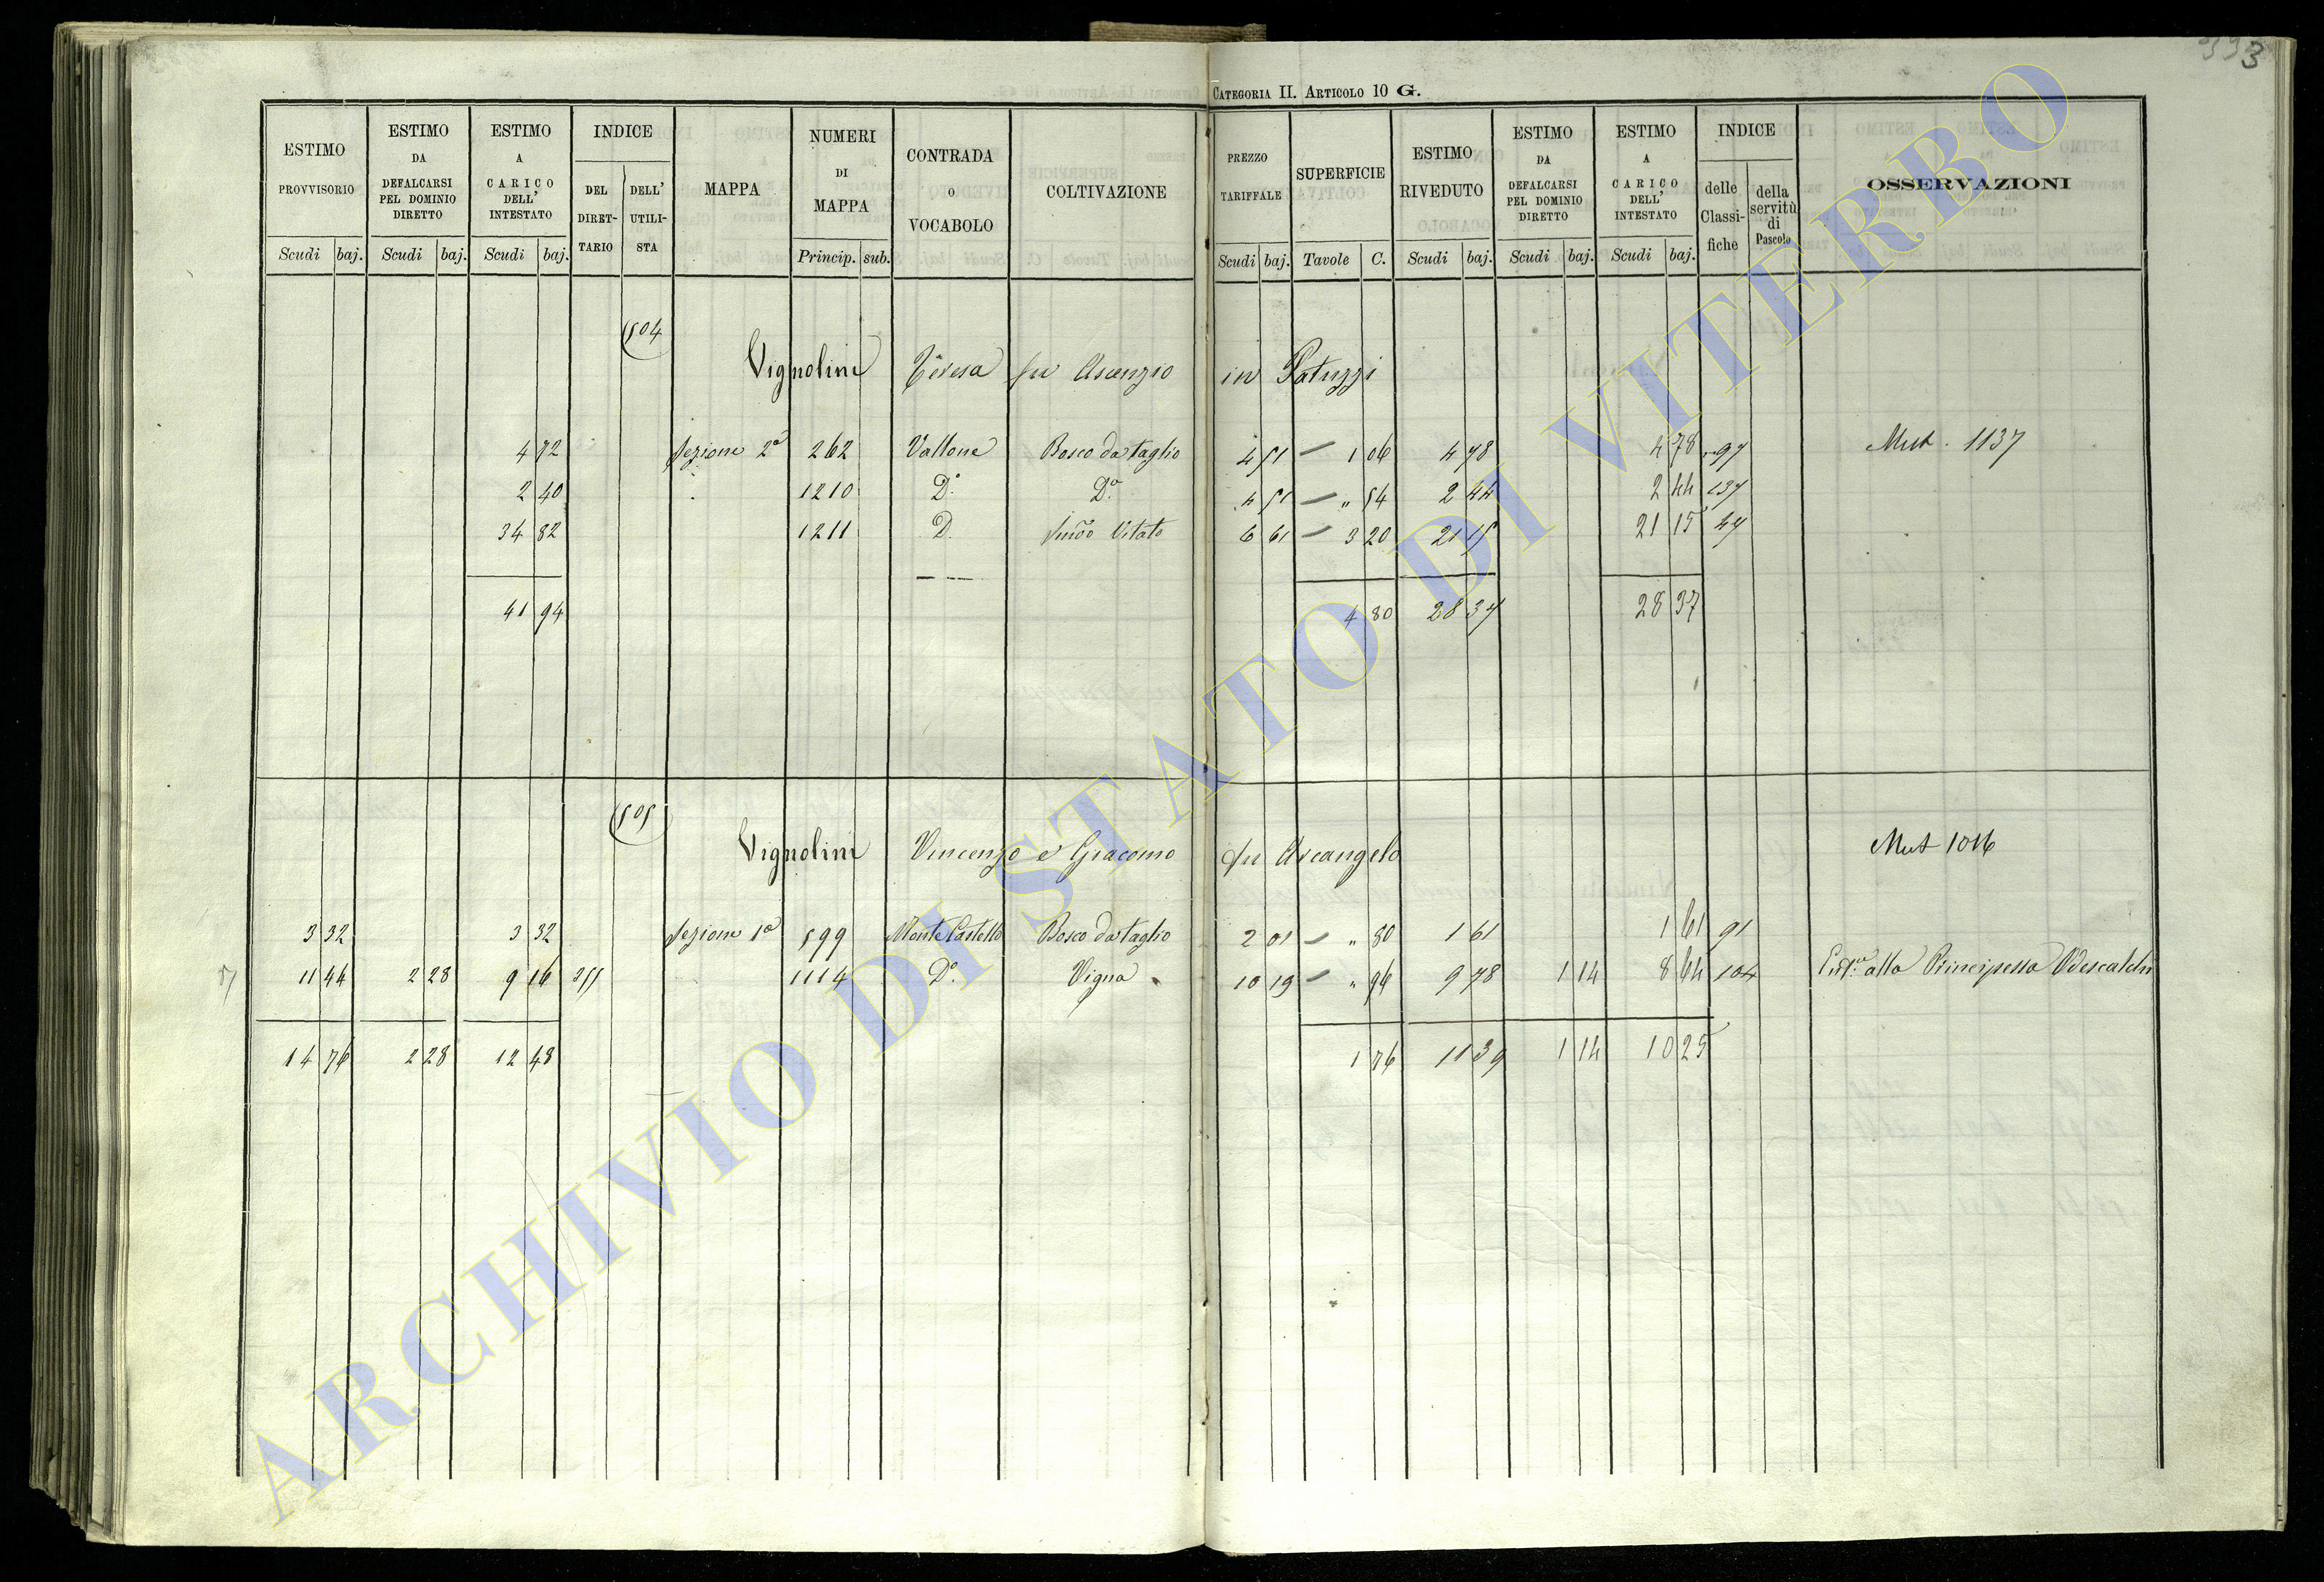 393
CATEGORIA II. ARTICOLO 10 G.
ESTIMO PROVVISORIO Scudi baj.
ESTIMO DA DEFALCARSI PEL DOMINIO DIRETTO Scudi baj.
ESTIMO A CARICO DELL' INTESTATO Scudi baj.
INDICE DEL DIRET-TARIO DELL' UTILI-STA
MAPPA
NUMERI DI MAPPA Princip. sub.
CONTRADA O VOCABOLO
COLTIVAZIONE
PREZZO TARIFFALE Scudi baj.
SUPERFICIE Tavole C.
ESTIMO RIVEDUTO Scudi baj.
ESTIMO DA DEFALCARSI PEL DOMINIO DIRETTO Scudi baj.
ESTIMO A CARICO DELL' INTESTATO Scudi baj.
INDICE delle Classi-fiche della servitù di Pascolo
OSSERVAZIONI
504
Vignolini Teresa fu Ascenzio in Patuzzi
4 72 Sezione 2a 262 Vallone Bosco da taglio 4 51 — 1 06 4 78 4 78 97 Mut. 1137
2 40 1210 Do. Do. 4 51 — " 54 2 44 2 44 137
34 82 1211 D. Vitato 6 61 — 3 20 21 15 21 15 47
41 94 4 80 28 37 28 37
505
Vignolini Vincenzo e Giacomo fu Arcangelo Mut 1016
3 32 3 32 Sezione 1a 599 Monte Castello Bosco da taglio 2 01 — " 80 1 61 1 61 91
11 44 2 28 9 16 355 1114 Do. Vigna 10 19 — " 96 9 78 1 14 8 64 104 alla Principessa Odescalchi
14 76 2 28 12 48 1 76 11 39 1 14 10 25
ARCHIVIO DI STATO DI VITERBO